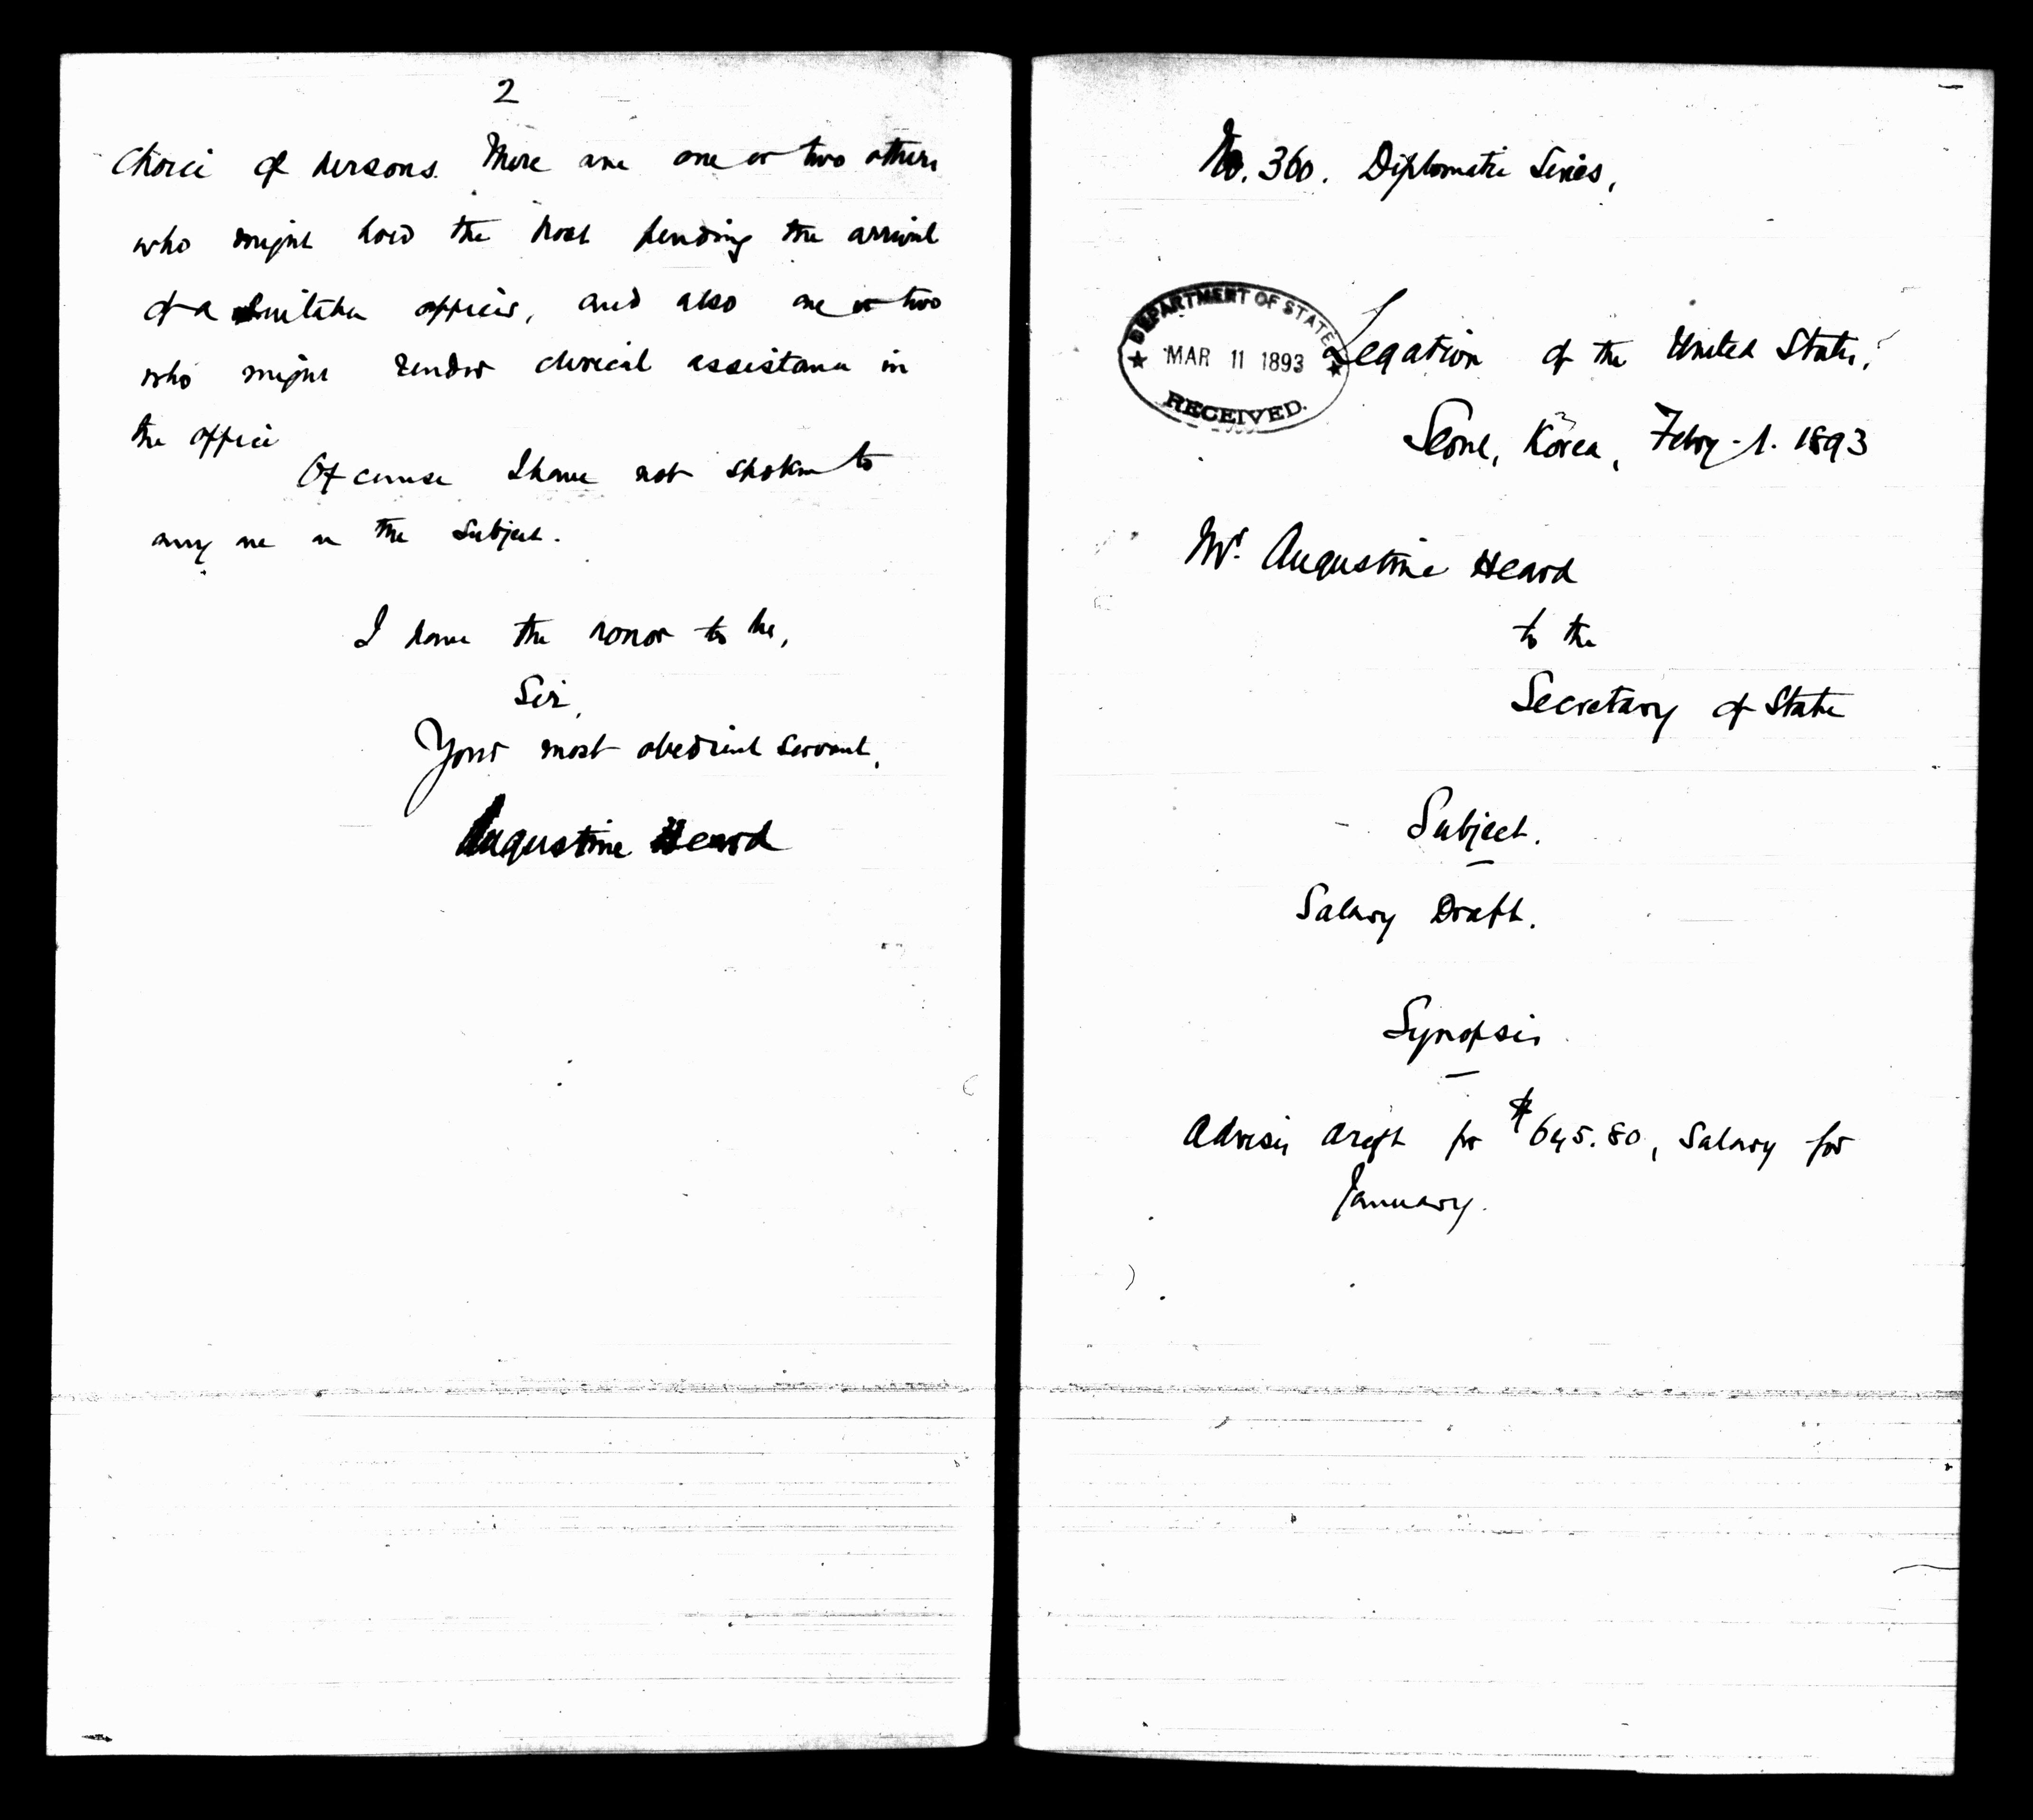 2
choice of persons. There are one or two others
who might hold the post pending the arrival
of a suitable officer, and also one or two
who might render clerical assistance in
the office
Of course I have not spoken to
any one on the subject.
I have the honor to be,
Sir,
Your most obedient servant,
Augustine Heard
No. 360. Diplomatic Series,
DEPARTMENT OF STATE
MAR 11 1893
RECEIVED.
Legation of the United States,
Seoul, Korea, Febry 1. 1893
Mr. Augustine Heard
to the
Secretary of State
Subject.
Salary Draft.
Synopsis
Advises draft for $645.80, Salary for
January.